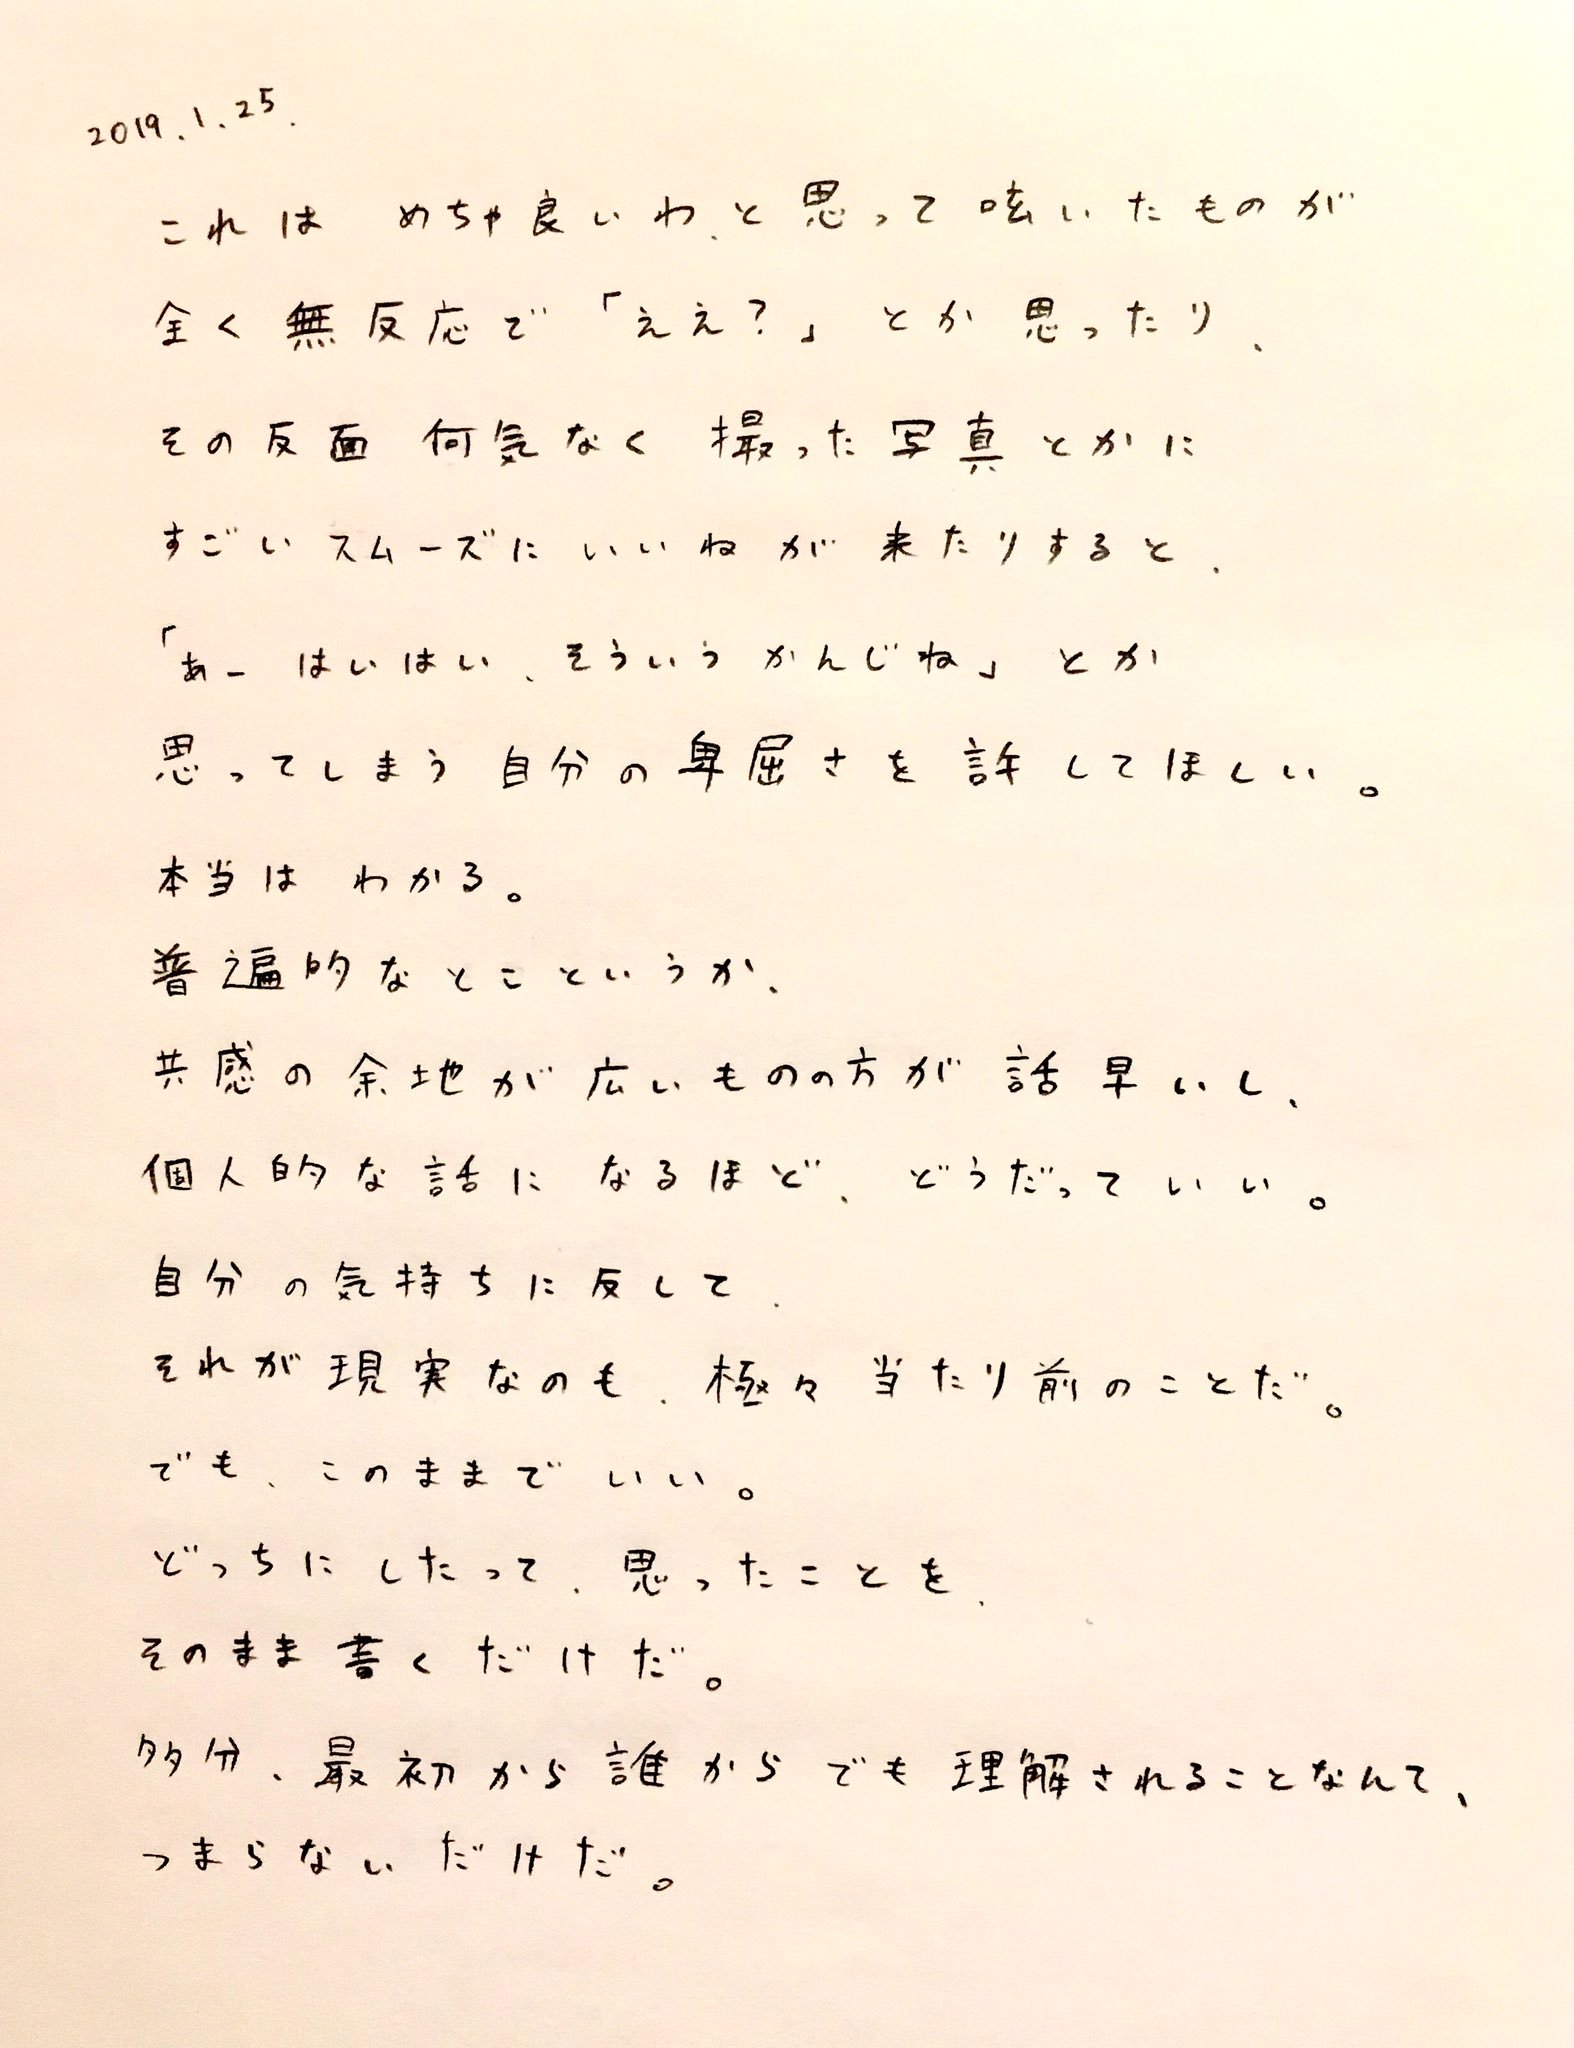 2019.1.25.
これは めちゃ良いわ、と思って呟いたものが
全く無反応で「ええ?」とか思ったり、
その反面 何気なく撮った写真とかに
すごいスムーズにいいねが来たりすると、
「あー はいはい、そういうかんじね」とか
思ってしまう自分の卑屈さを許してほしい。
本当は わかる。
普遍的なとこというか、
共感の余地が広いものの方が話早いし、
個人的な話に なるほど、どうだっていい。
自分の気持ちに反して、
それが現実なのも、極々当たり前のことだ。
でも、このままでいい。
どっちにしたって、思ったことを、
そのまま書くだけだ。
多分、最初から誰からでも理解されることなんて、
つまらないだけだ。